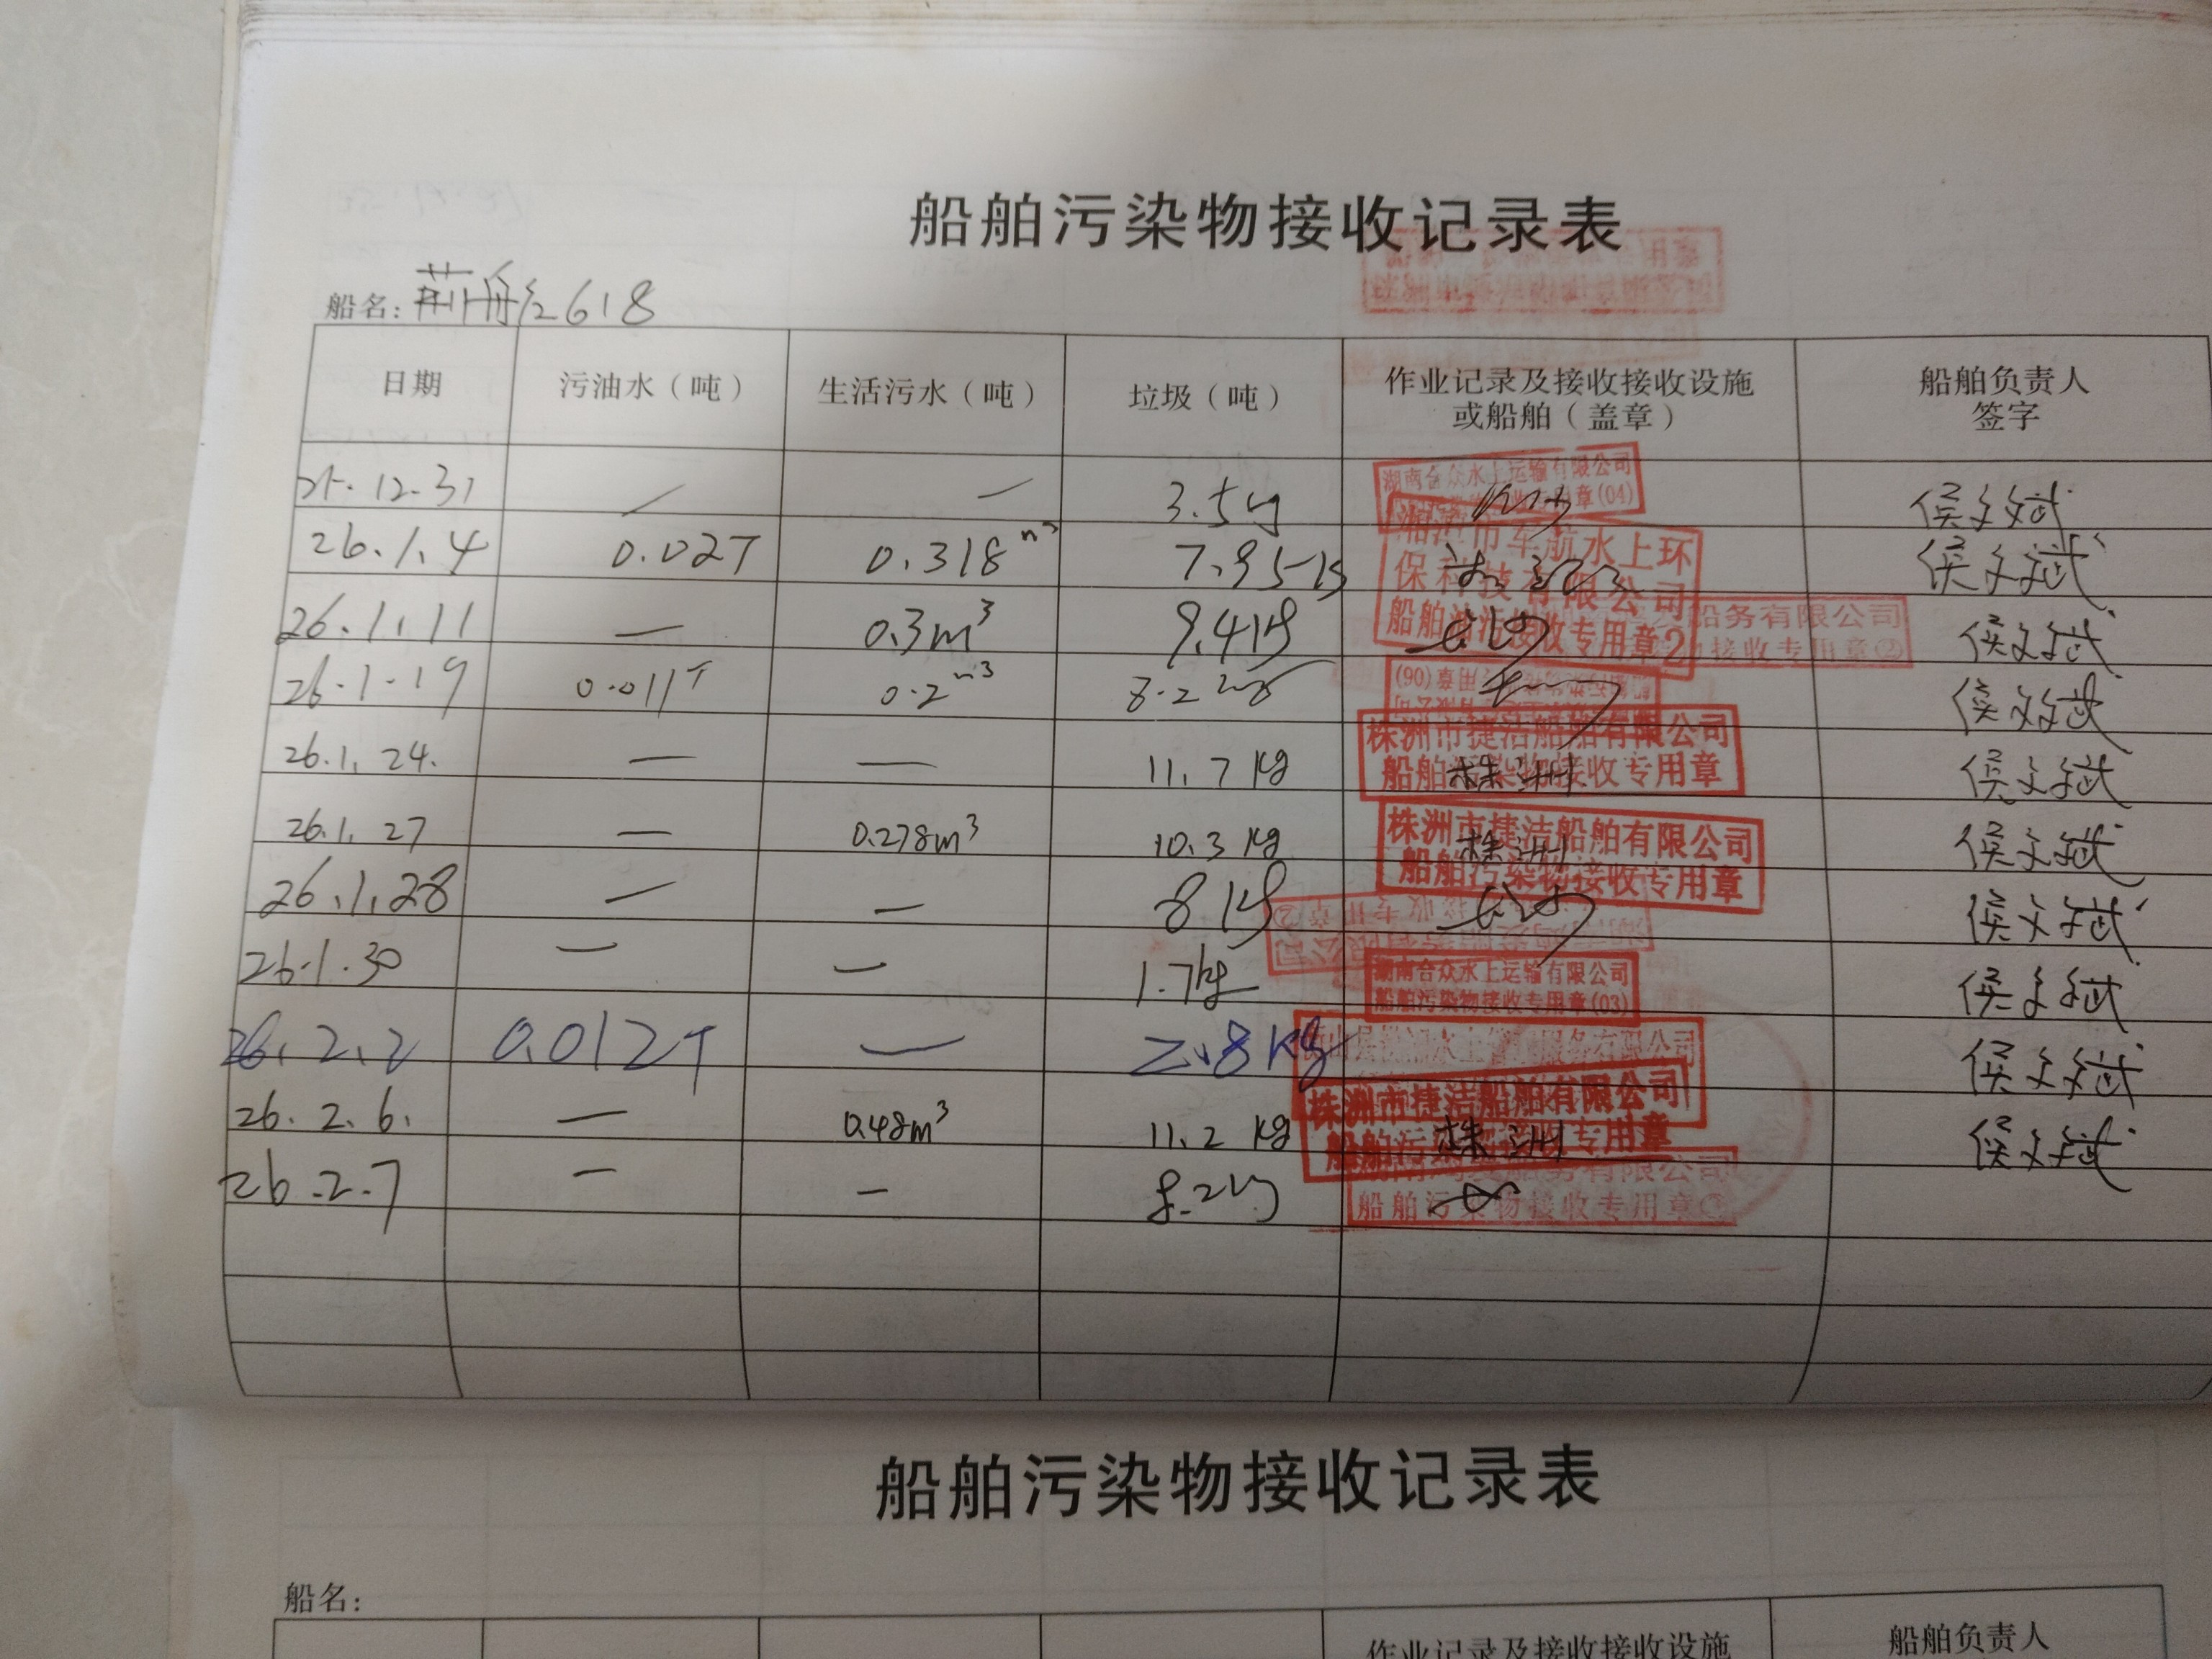 船舶污染物接收记录表
船名: 荆舟红618
日期 污油水（吨） 生活污水（吨） 垃圾（吨） 作业记录及接收接收设施或船舶（盖章） 船舶负责人签字
25.12.31 — — 3.5kg 湖南合众水上运输有限公司 章(04) 侯文斌
26.1.4 0.02T 0.318m³ 7.95kg 湘潭市车航水上环保科技有限公司 侯文斌
26.1.11 — 0.3m³ 9.4kg 船务有限公司 接收专用章② 侯文斌
26.1.19 0.011T 0.2m³ 8.2kg 侯文斌
26.1.24. — — 11.7kg 株洲市捷洁船舶有限公司 船舶污染物接收专用章 株洲 侯文斌
26.1.27 — 0.278m³ 10.3kg 株洲市捷洁船舶有限公司 船舶污染物接收专用章 株洲 侯文斌
26.1.28 — — 8kg 侯文斌
26.1.30 — — 1.7kg 湖南合众水上运输有限公司 船舶污染物接收专用章(03) 侯文斌
26.2.2 0.012T — 2.8kg 侯文斌
26.2.6. — 0.48m³ 11.2kg 株洲市捷洁船舶有限公司 船舶污染物接收专用章 株洲 侯文斌
26.2.7 — — 8.2kg 船舶污染物接收专用章①
船舶污染物接收记录表
船名:
作业记录及接收接收设施 船舶负责人